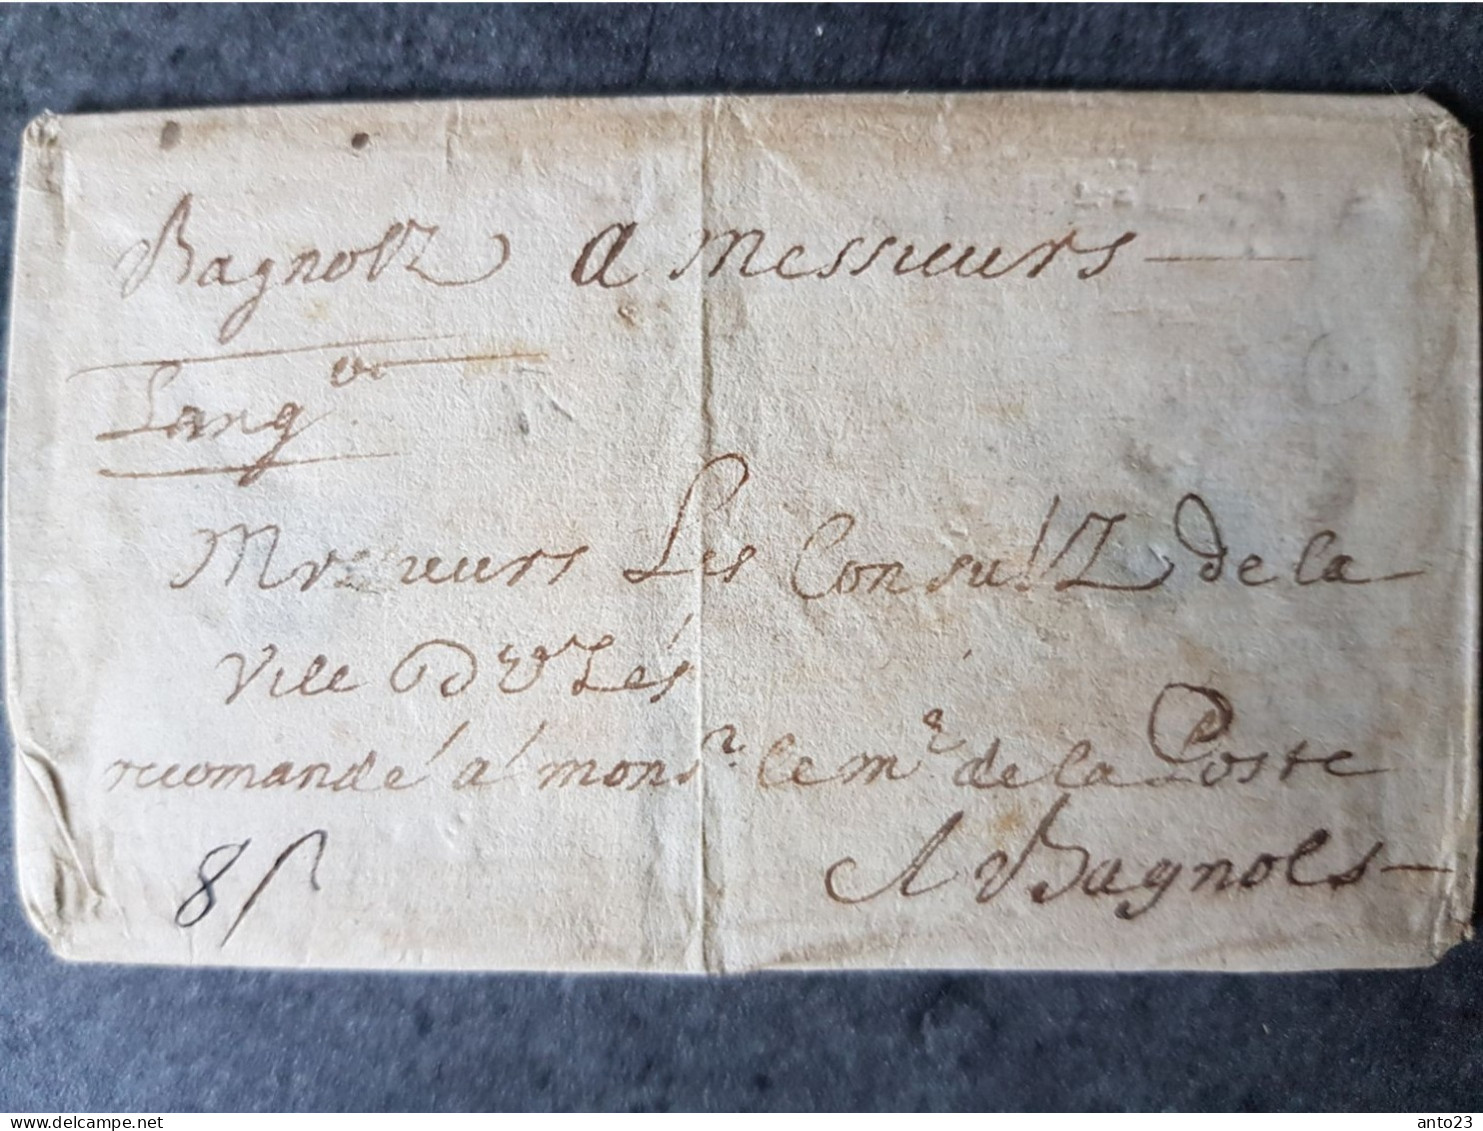 Bagnolz a Messieurs
Lang oc
Messieurs Les Consulz de la
Ville
recomandé á monsr. le mr de la Poste
A Bagnols
8 s
anto23